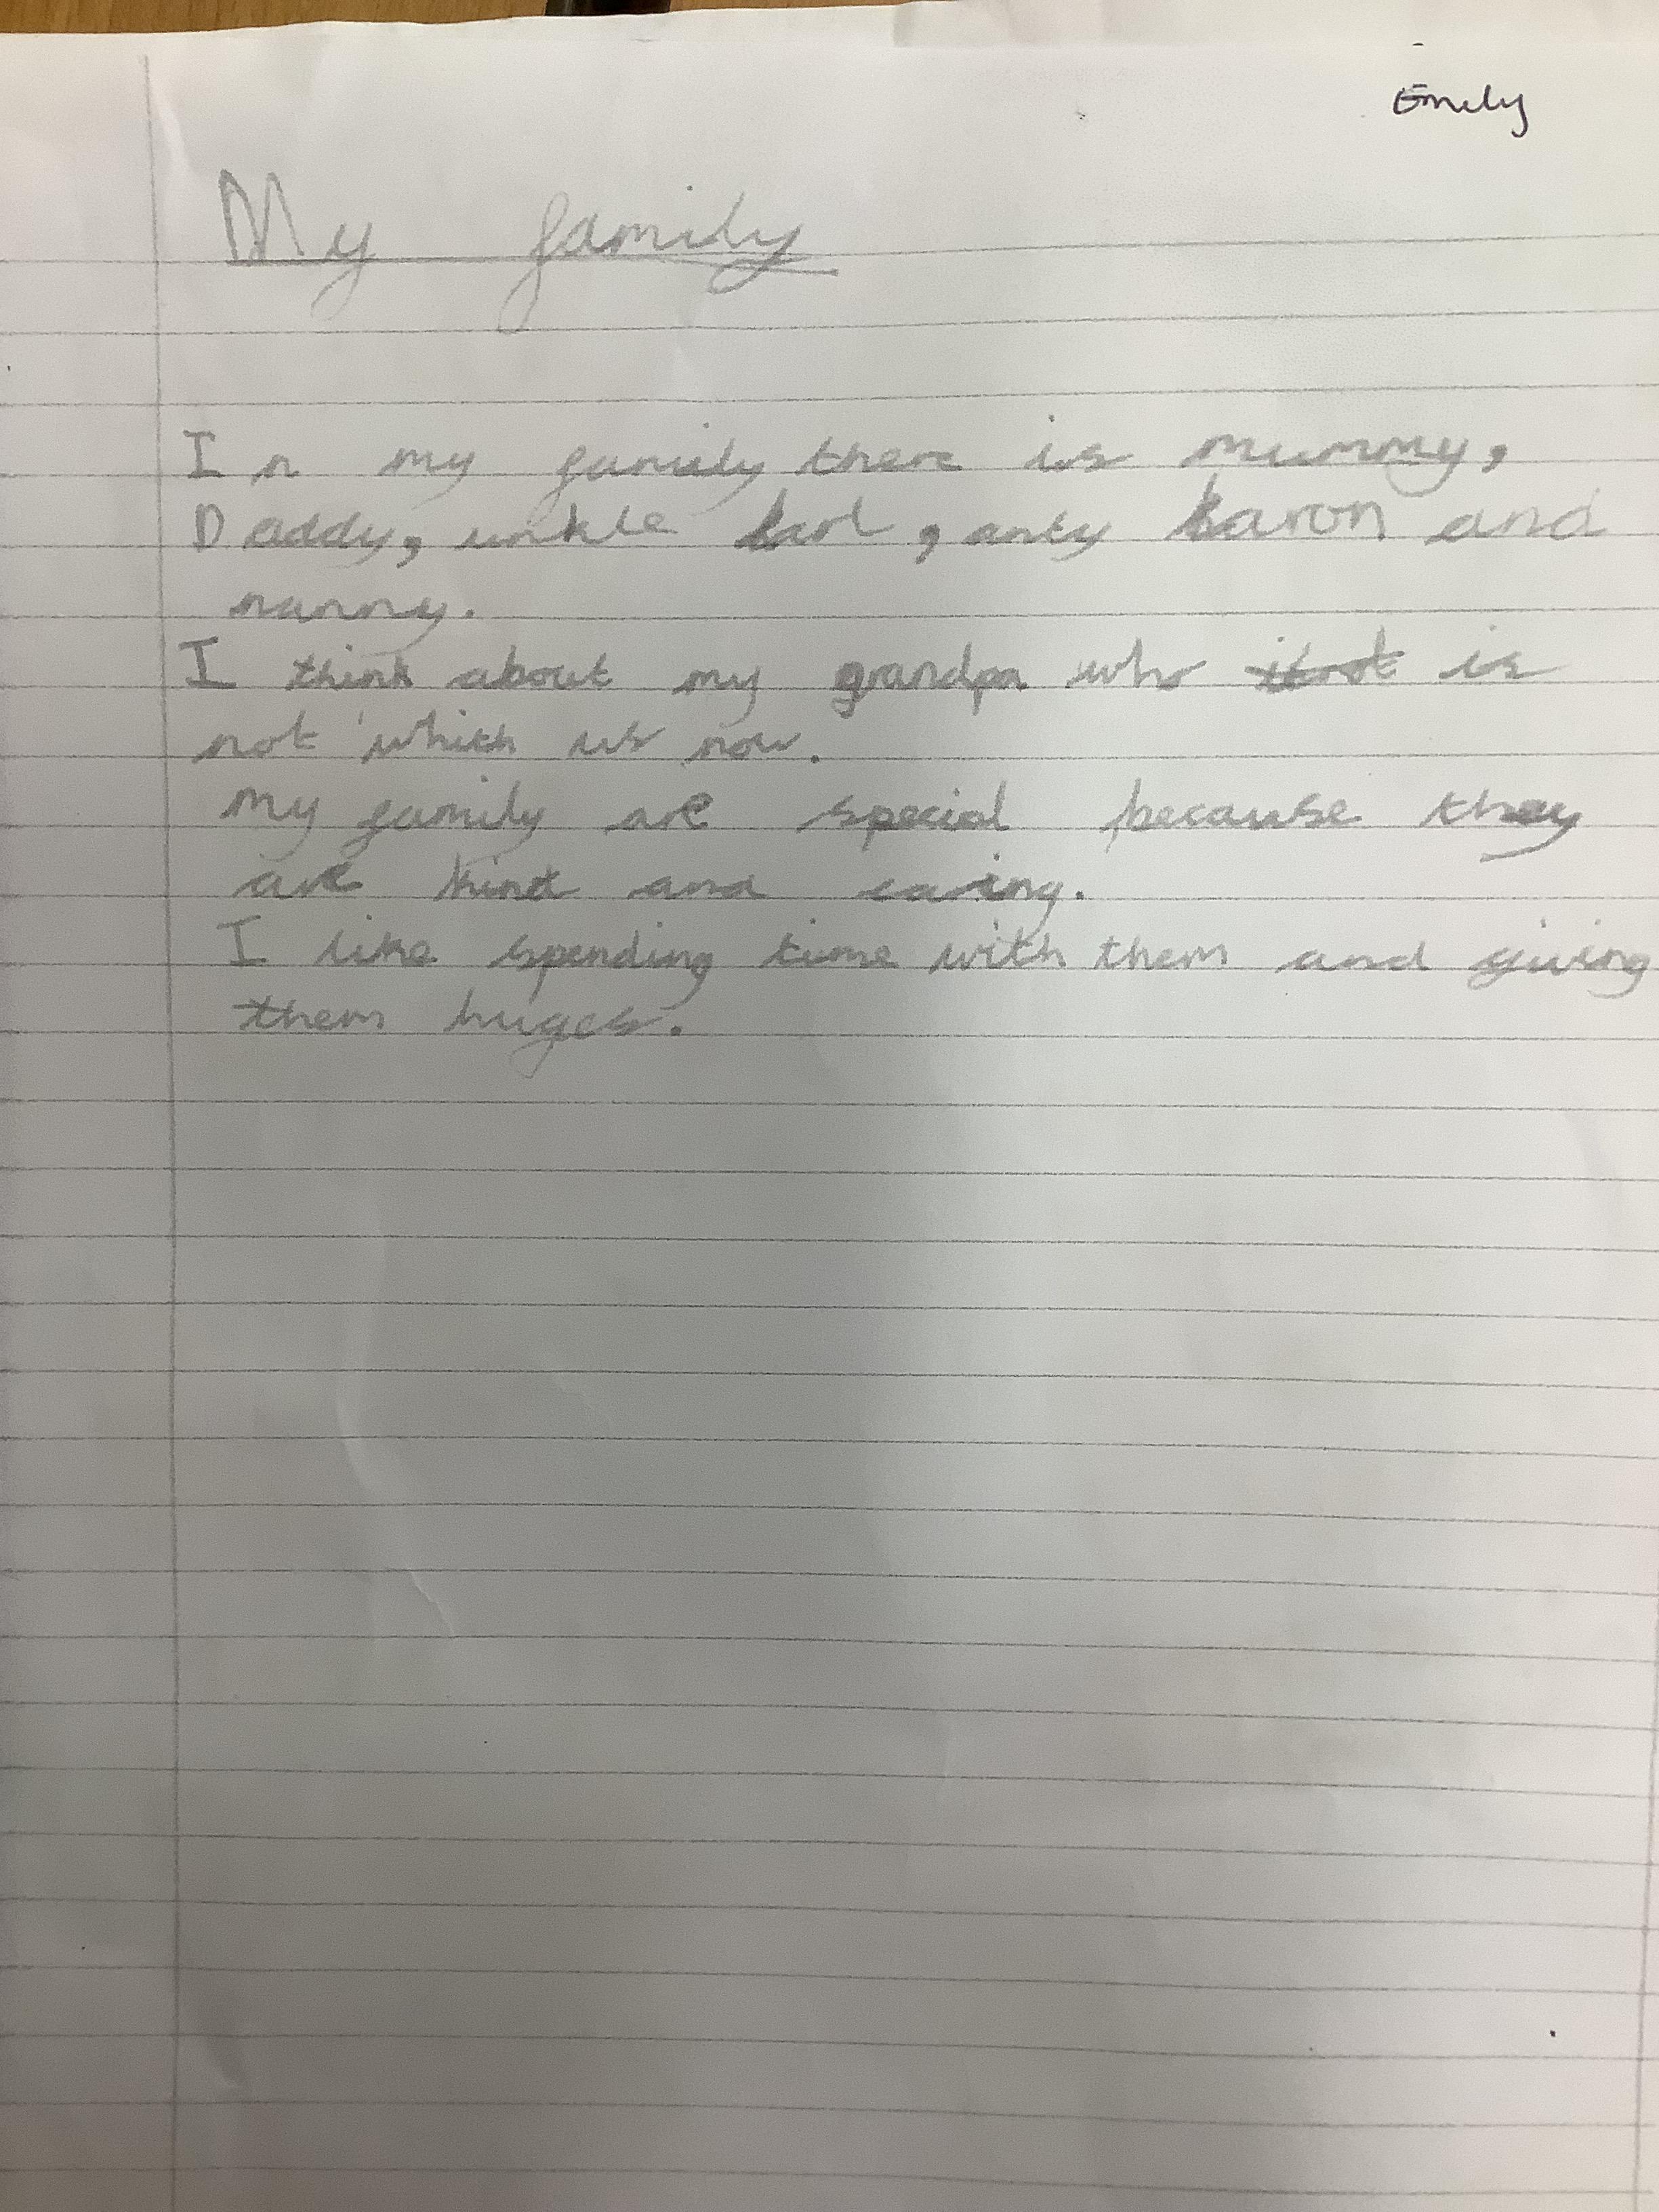 Emily
My family
In my family there is mummy,
Daddy, unkle karl, anty karon and
nanny.
I think about my grandpa who is
not which us now.
my family are special because they
are kind and caring.
I like spending time with them and giving
them huges.